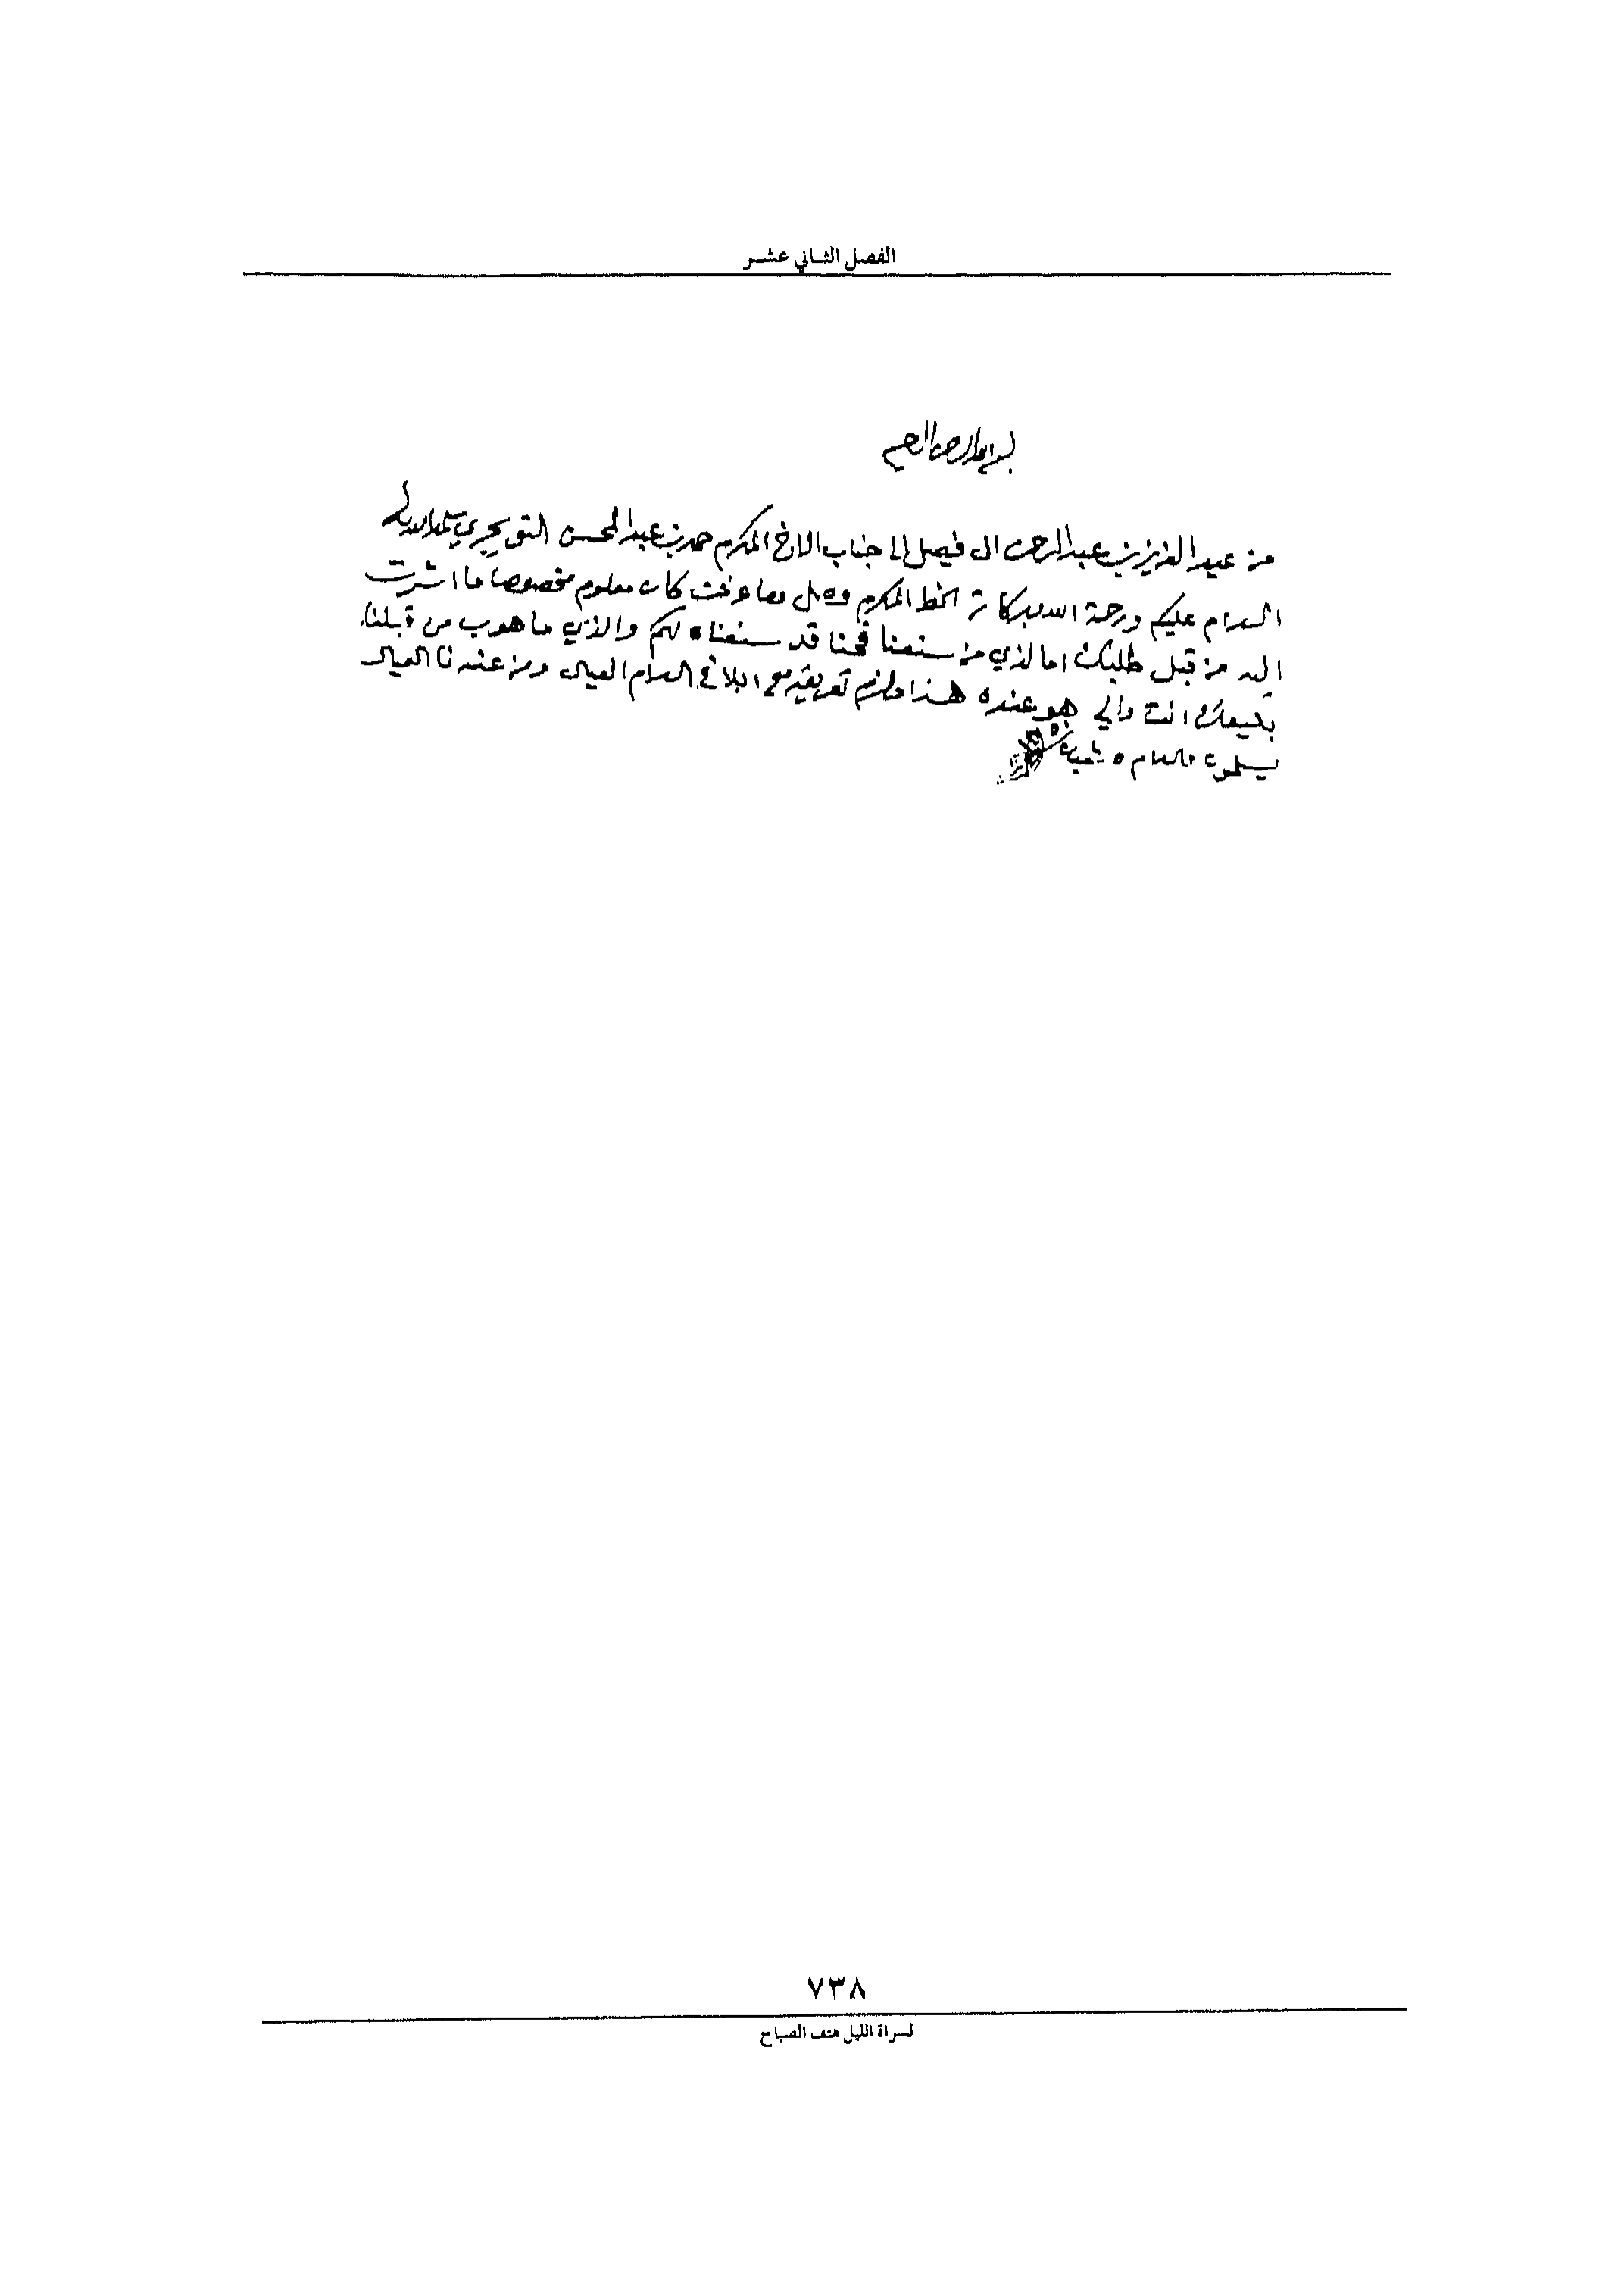 الفصل الثاني عشر
بسم الله الرحمن الرحيم
من عبد العزيز بن عبد الرحمن ال فيصل الى جناب الاخ المكرم حمد بن عبد المحسن التويجري سلمه الله
السلام عليكم ورحمة الله وبركاته الخط المكرم وصل وما عرفت كان معلوم مخصوصا ما اشرت
اليه من قبل طلبك اما لذي من سنعنا فحنا قد سنعناه لكم والذي ماهوب من قبلنا
بكيفك انت والي هو عنده هذا مالزم تعريفه مع ابلاغ السلام العيال ومن عندنا العيال
يسلمون والسلام ٥ شعبان
٧٣٨
لسراة الليل هتف الصباح